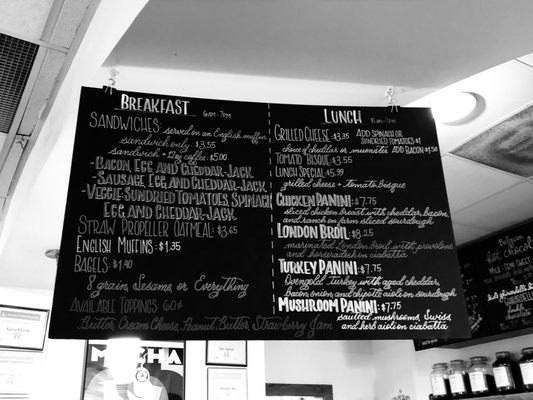 BREAKFAST 6AM-7PM
SANDWICHES: served on an English muffin
sandwich only $3.55
sandwich + 12oz coffee: $5.00
-BACON, EGG, AND CHEDDAR-JACK
-SAUSAGE, EGG AND CHEDDAR-JACK
-VEGGIE: SUNDRIED TOMATOES, SPINACH,
EGG AND CHEDDAR-JACK
STRAW PROPELLER OATMEAL: $3.65
ENGLISH MUFFINS: $1.35
BAGELS: $1.40
8 grain, Sesame, or Everything
AVAILABLE TOPPINGS: 60¢
Butter, Cream Cheese, Peanut Butter, Strawberry Jam
LUNCH 11AM-7PM
GRILLED CHEESE: $3.35 ADD SPINACH OR
SUNDRIED TOMATOES $1
choice of cheddar or muenster ADD BACON $1.50
TOMATO BISQUE: $3.55
LUNCH SPECIAL: $5.99
grilled cheese + tomato bisque
CHICKEN PANINI: $7.75
sliced chicken breast with cheddar, bacon,
and ranch on farm sliced sourdough
LONDON BROIL: $8.25
marinated London broil with provolone
and horseradish on ciabatta
TURKEY PANINI: $7.75
Ovengold turkey with aged cheddar,
bacon, onion and chipotle aioli on sourdough
MUSHROOM PANINI: $7.75
sautéed mushrooms, Swiss,
and herb aioli on ciabatta
Belgian
hot chocolate
MOCHA